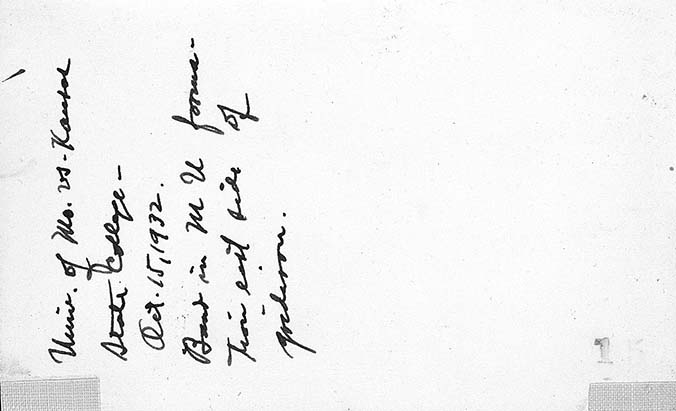 Univ. of Mo. vs - Kansas
State College -
Oct. 15, 1932.
Band in M U forma-
tion east side of
gridiron.
1